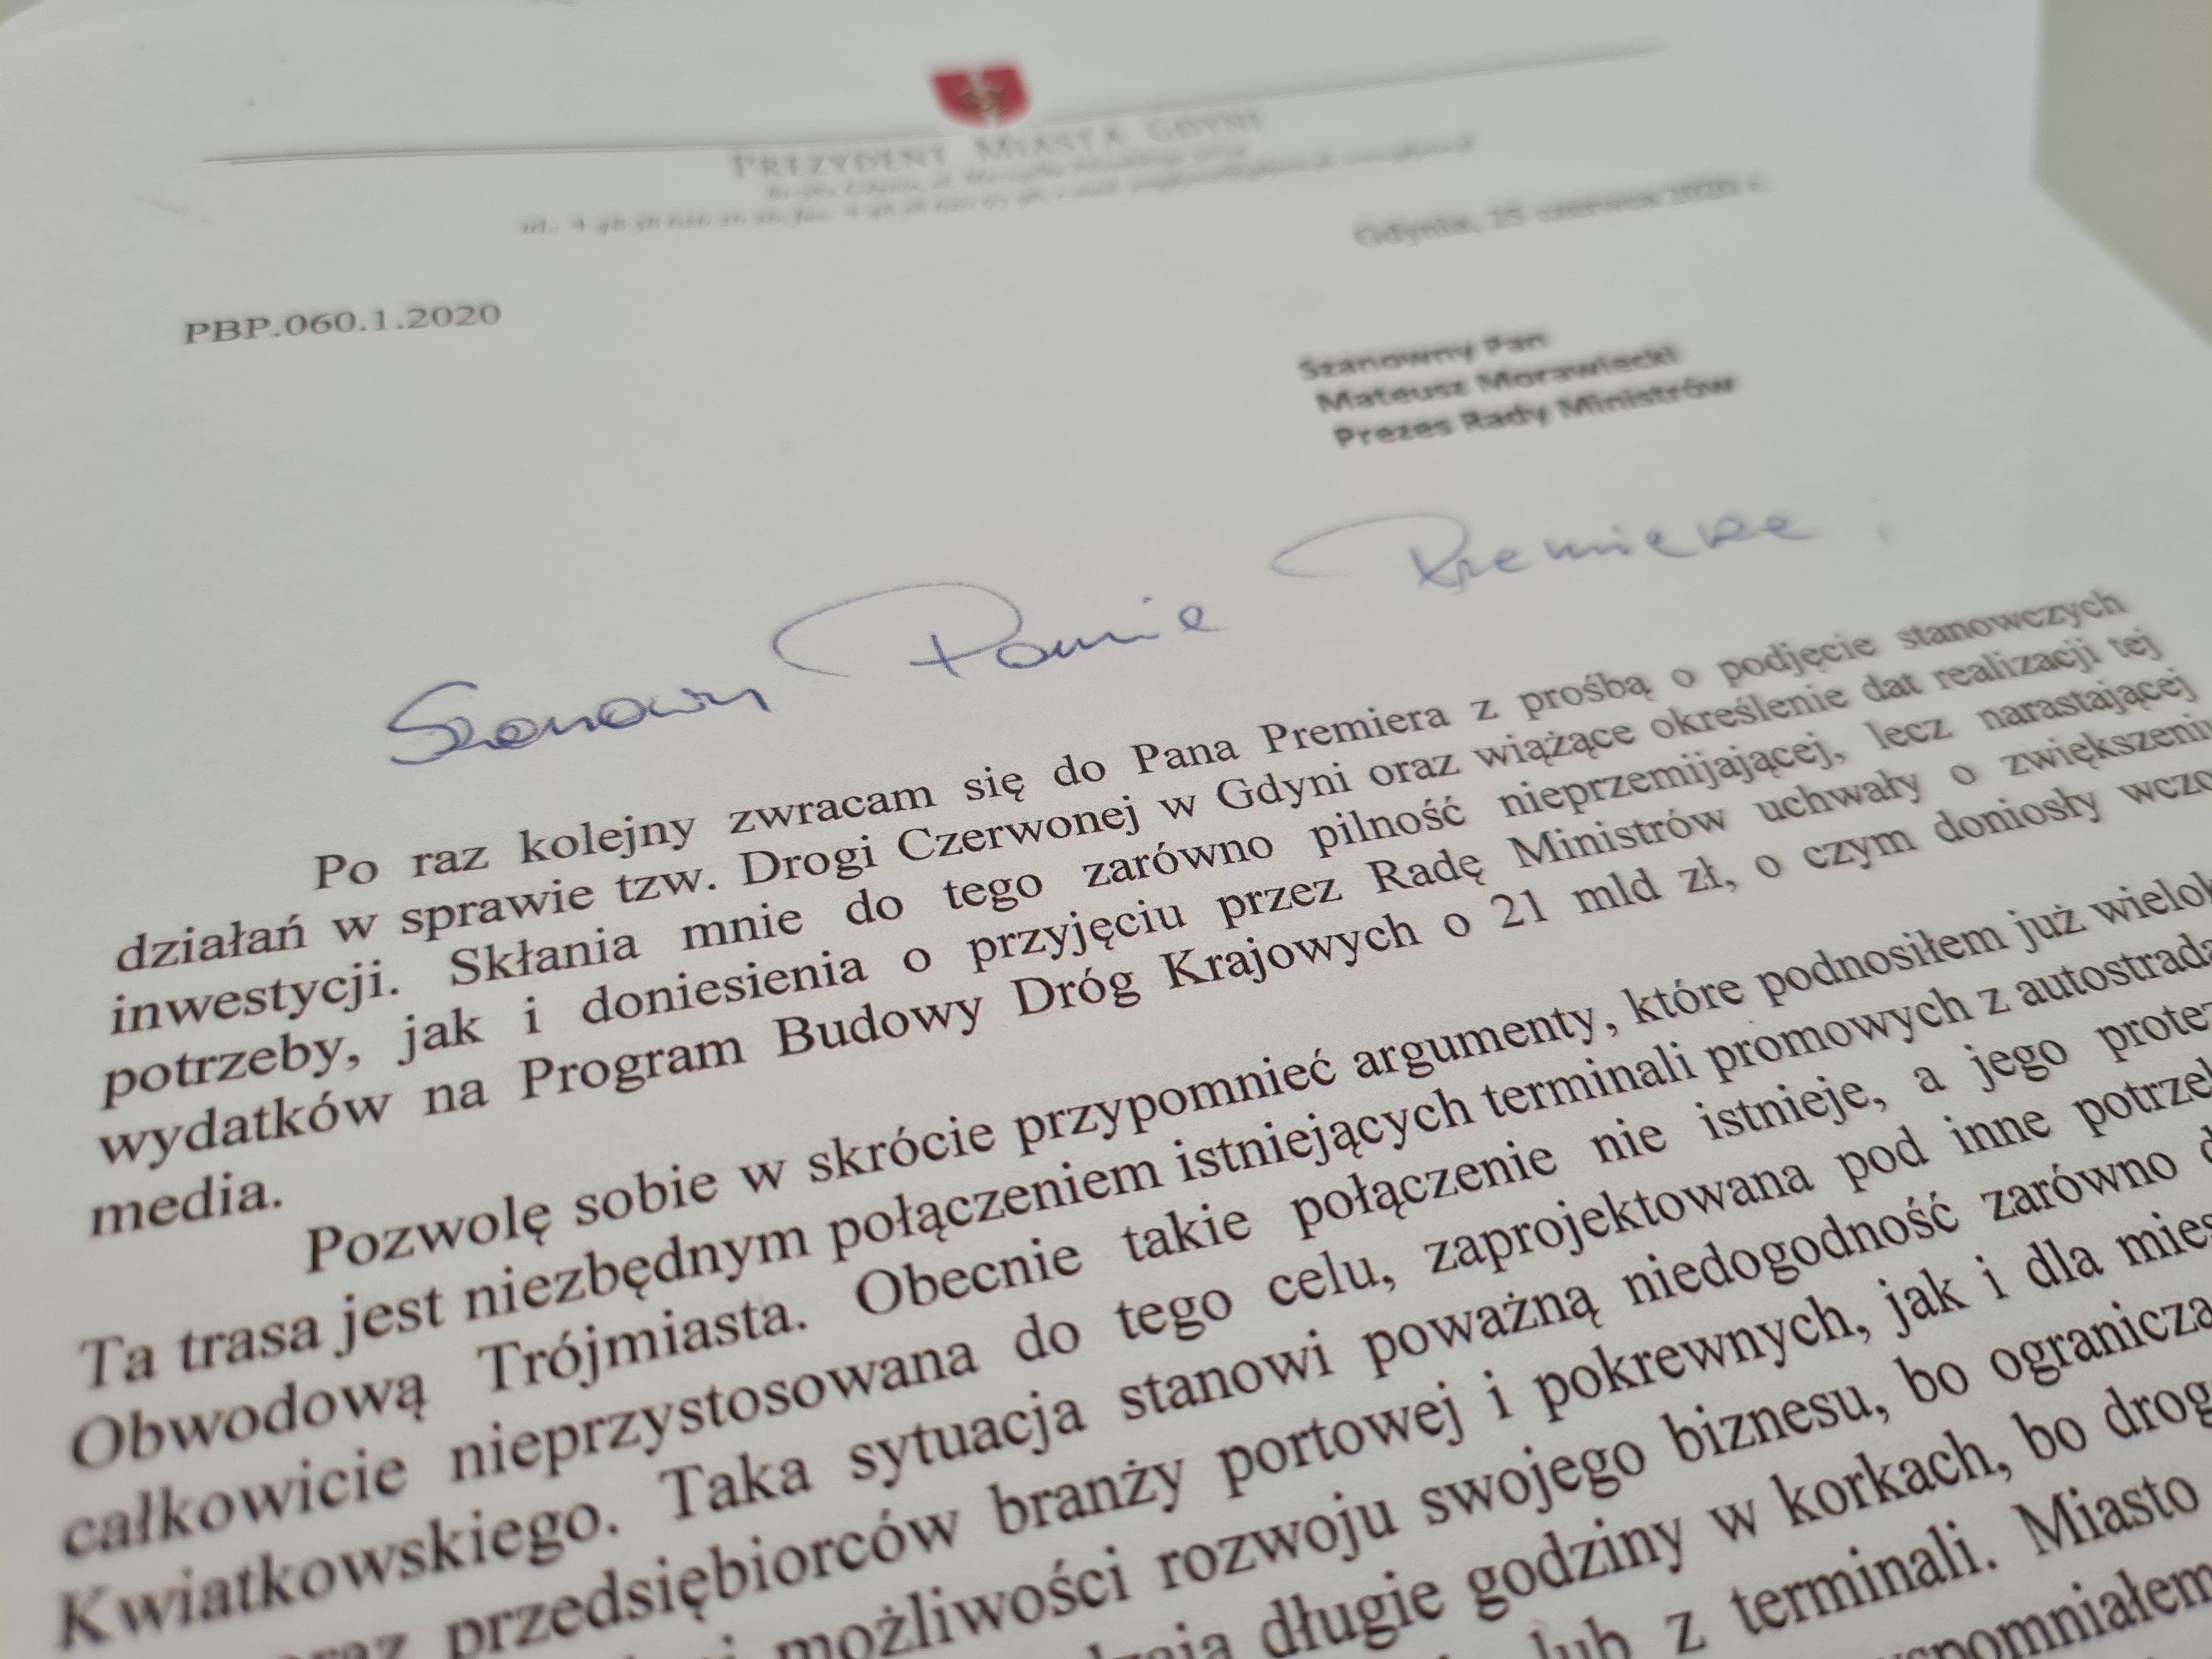 PREZYDENT MIASTA GDYNI
Gdynia, 15 czerwca 2020 r.
PBP.060.1.2020
Szanowny Pan
Mateusz Morawiecki
Prezes Rady Ministrów
Szanowny Panie Premierze
Po raz kolejny zwracam się do Pana Premiera z prośbą o podjęcie stanowczych
działań w sprawie tzw. Drogi Czerwonej w Gdyni oraz wiążące określenie dat realizacji tej
inwestycji. Skłania mnie do tego zarówno pilność nieprzemijającej, lecz narastającej
potrzeby, jak i doniesienia o przyjęciu przez Radę Ministrów uchwały o zwiększeni
wydatków na Program Budowy Dróg Krajowych o 21 mld zł, o czym doniosły wczo
media.
Pozwolę sobie w skrócie przypomnieć argumenty, które podnosiłem już wielok
Ta trasa jest niezbędnym połączeniem istniejących terminali promowych z autostrada
Obwodową Trójmiasta. Obecnie takie połączenie nie istnieje, a jego prote
całkowicie nieprzystosowana do tego celu, zaprojektowana pod inne potrzeb
Kwiatkowskiego. Taka sytuacja stanowi poważną niedogodność zarówno d
oraz przedsiębiorców branży portowej i pokrewnych, jak i dla mies
możliwości rozwoju swojego biznesu, bo ogranicza
długie godziny w korkach, bo drog
lub z terminali. Miasto
spomniałem